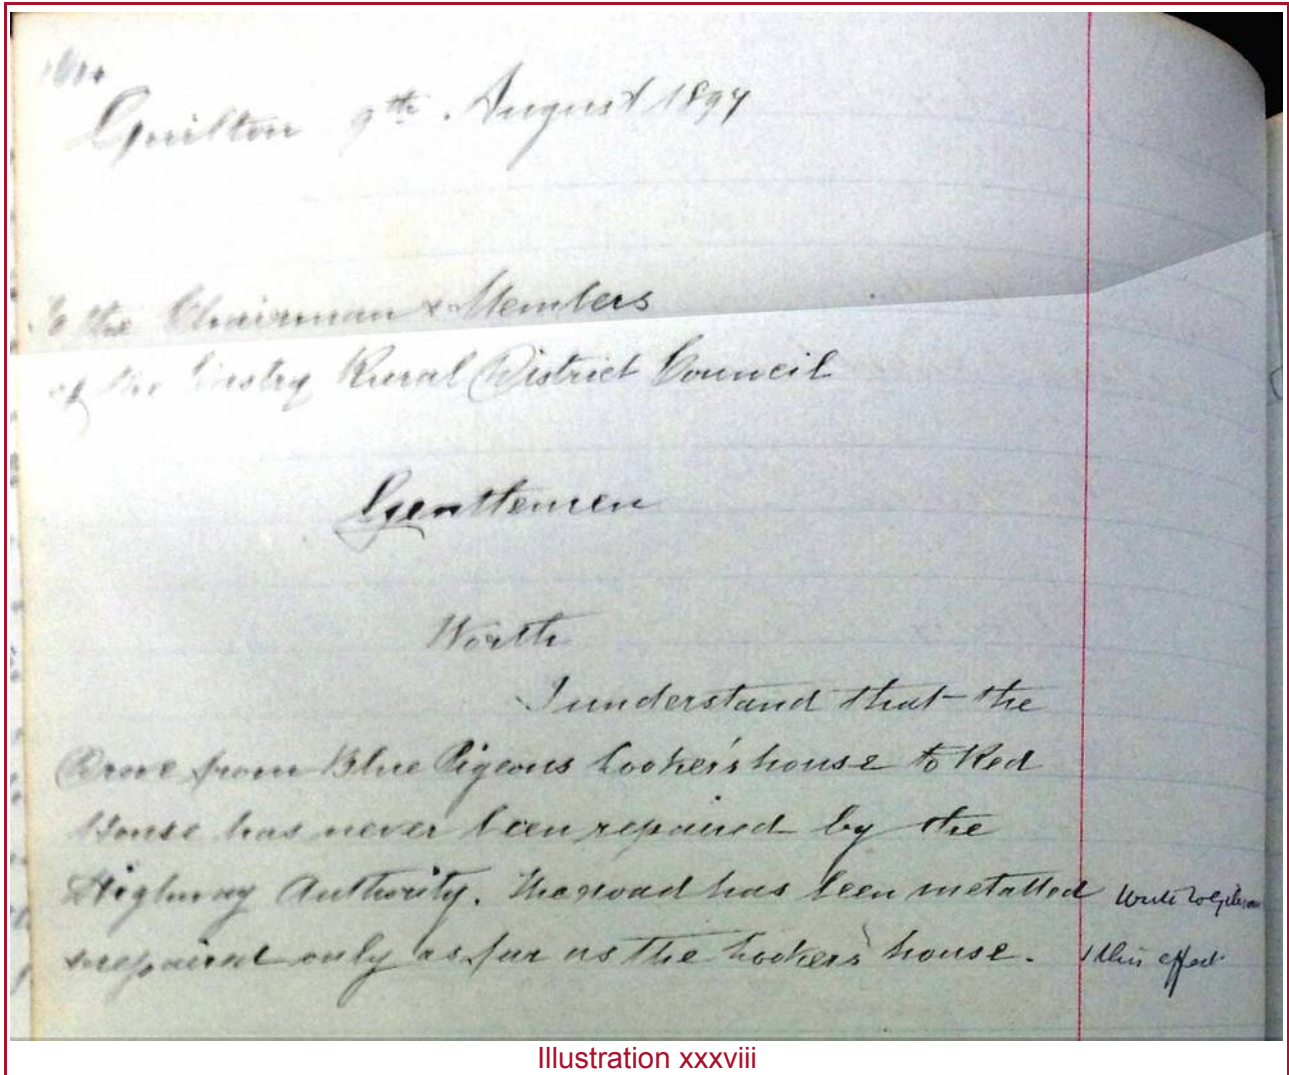 Guilton 9th August 1897
To the Chairman & Members
of the Eastry Rural District Council
Gentlemen
Worth
I understand that the
Drove from Blue Pigeons looker's house to Red
House has never been repaired by the
Highway Authority. The road has been metalled
& repaired only as far as the looker's house.
Write to
this effect
Illustration xxxviii